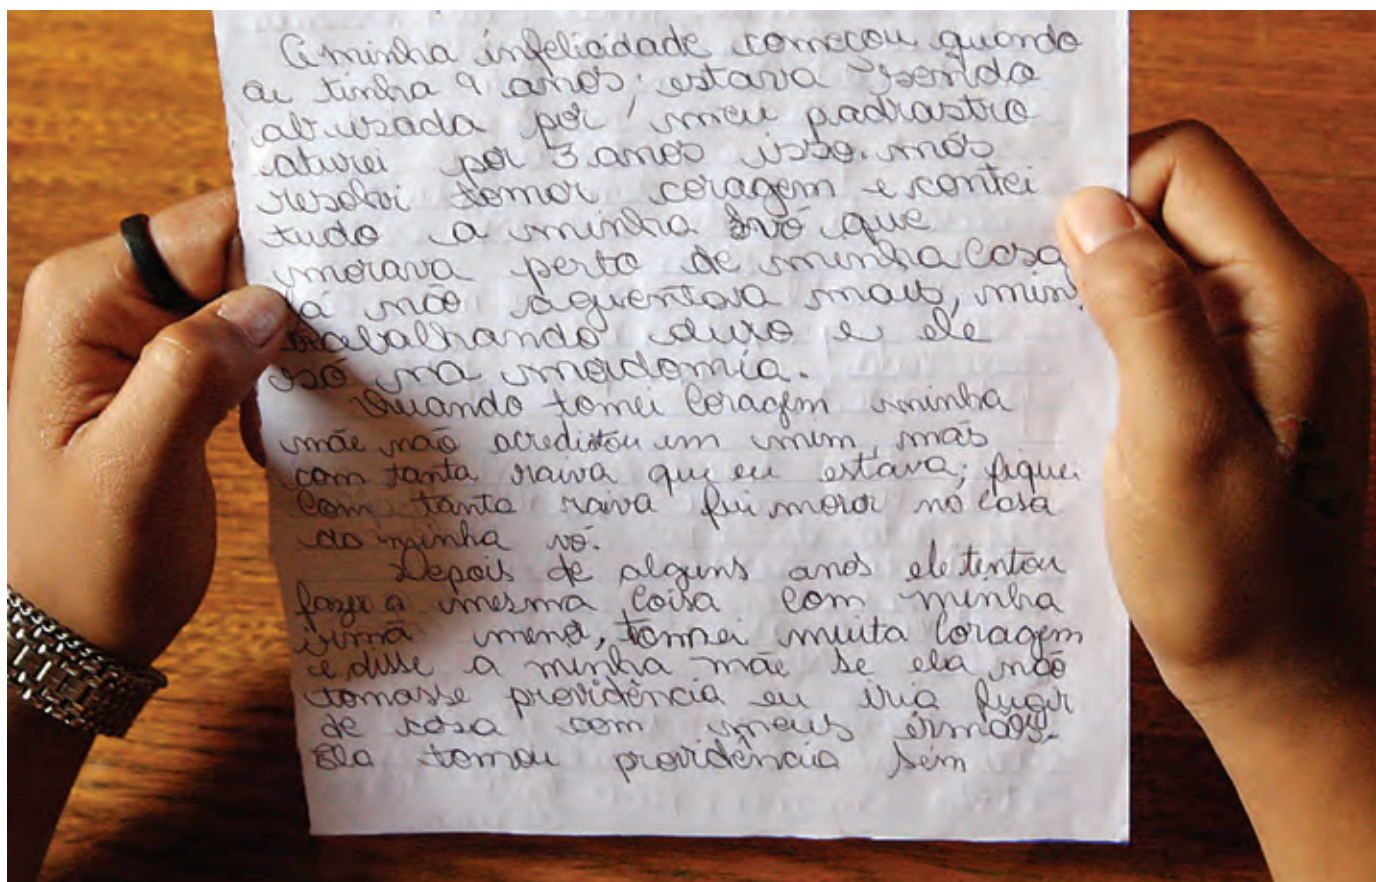 A minha infelicidade começou quando
eu tinha 9 anos; estava sendo
abusada por meu padrastro
aturei por 3 anos isso. más
resolvi tomar coragem e contei
tudo a minha vó que
morava perto de minha casa
já não aguentava mais, minh
trabalhando duro e ele
só na mordomia.
Quando tomei coragem minha
mãe não acreditou em mim, más
com tanta raiva que eu estava; fiquei
com tanta raiva fui morar na casa
da minha vó.
Depois de alguns anos ele tentou
fazer a mesma coisa com minha
irmã menor, tomei muita coragem
e disse a minha mãe se ela não
tomasse providência eu iria fugir
de casa com meus irmãos.
Ela tomou providência sem